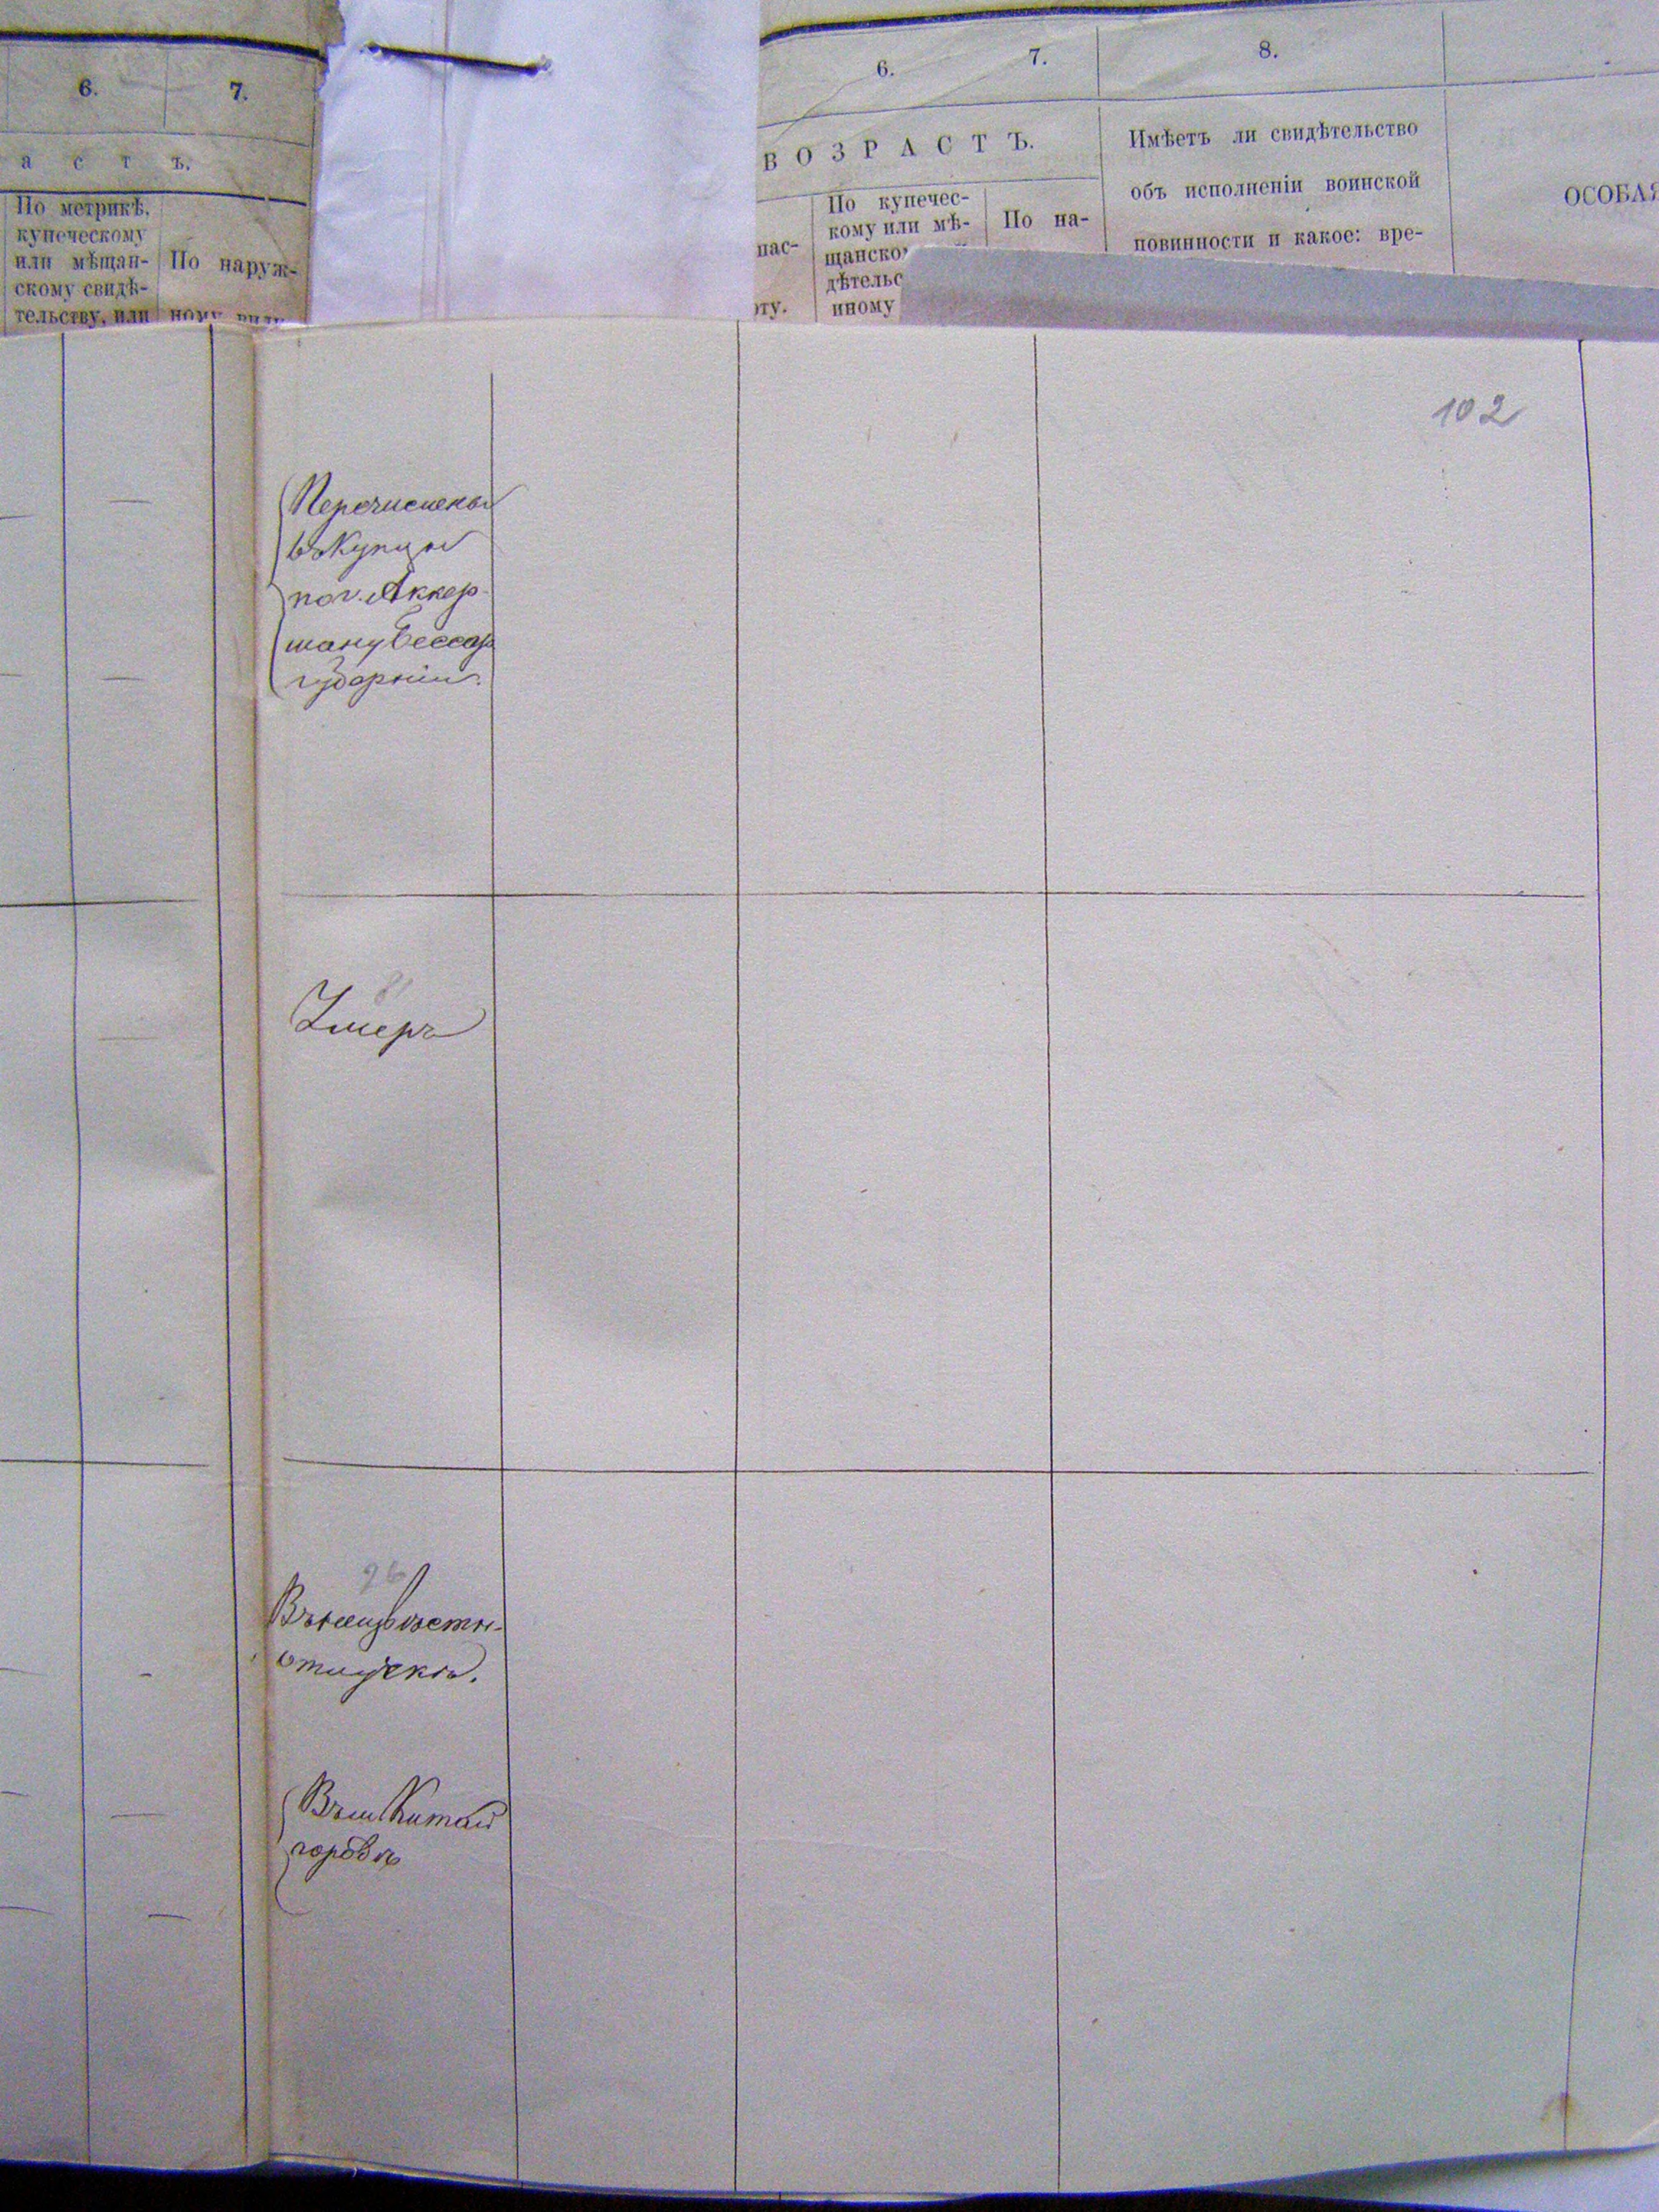 6.
7.
а с т ъ.
По метрикѣ,
купеческому
или мѣщан-
скому свидѣ-
тельству, или
По наруж-
ному виду
6.
7.
8.
ВОЗРАСТЪ.
пас-
рту.
По купечес-
кому или мѣ-
щанско
дѣтельс
иному
По на-
Имѣетъ ли свидѣтельство
объ исполненіи воинской
повинности и какое: вре-
ОСОБАЯ
102
Перечислены
въ Купцы
по г. Аккер-
ману Бессар
губерніи.
81
Умеръ
96
Въ неизвѣстн.
отлучкѣ.
Въ м Китай
городѣ